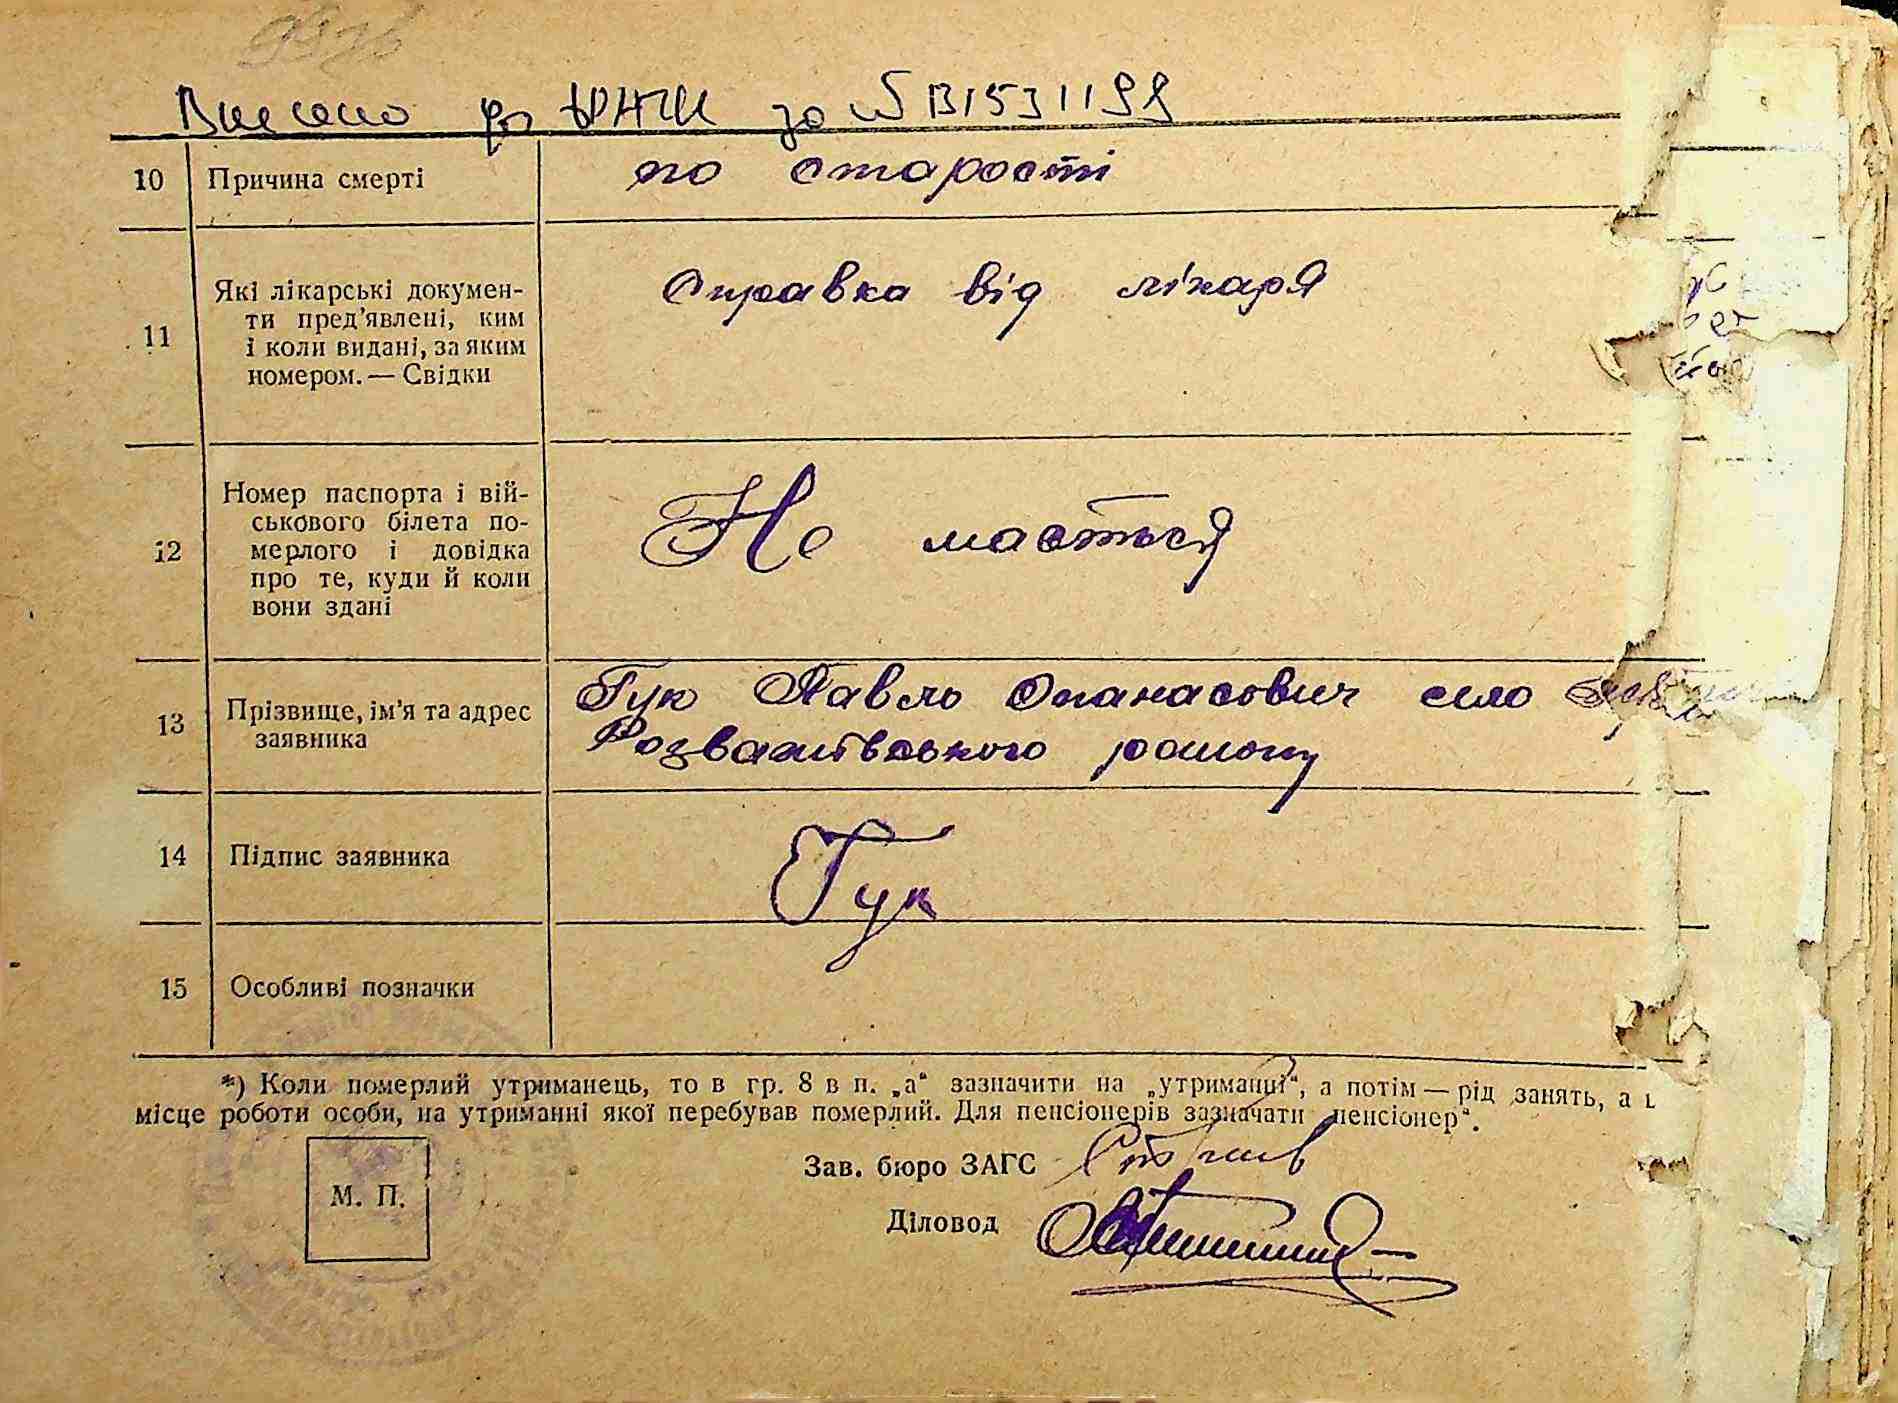 Внесено до за № В1531199
10 Причина смерті по старості
11 Які лікарські докумен-
ти пред'явлені, ким
і коли видані, за яким
номером. — Свідки
Справка від лікаря
12 Номер паспорта і вій-
ськового білета по-
мерлого і довідка
про те, куди й коли
вони здані
Не мається
13 Прізвище, ім'я та адрес
заявника
Гук Павло Опанасович село
Розважівського району
14 Підпис заявника Гук
15 Особливі позначки
*) Коли померлий утриманець, то в гр. 8 в п. „а“ зазначити на „утриманці“, а потім — рід занять, а
місце роботи особи, на утриманні якої перебував померлий. Для пенсіонерів зазначати „пенсіонер“.
М. П.
Зав. бюро ЗАГС
Діловод